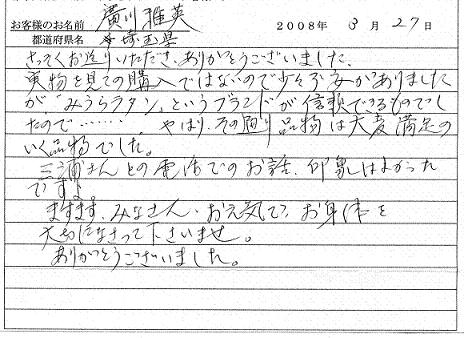 お客様のお名前 廣川 雅英 2008年 3月 27日
都道府県名 埼玉県
さっそくお送りいただき、ありがとうございました。
実物を見ての購入ではないので少々不安がありました
が「みうらラタン」というブランドが信頼できるものでし
たので…… やはり、その通り品物は大変満足の
いく品物でした。
三浦さんとの電話でのお話、印象はよかった
ですよ
ますます、みなさん、お元気で、お身体を
大切になさって下さいませ。
ありがとうございました。